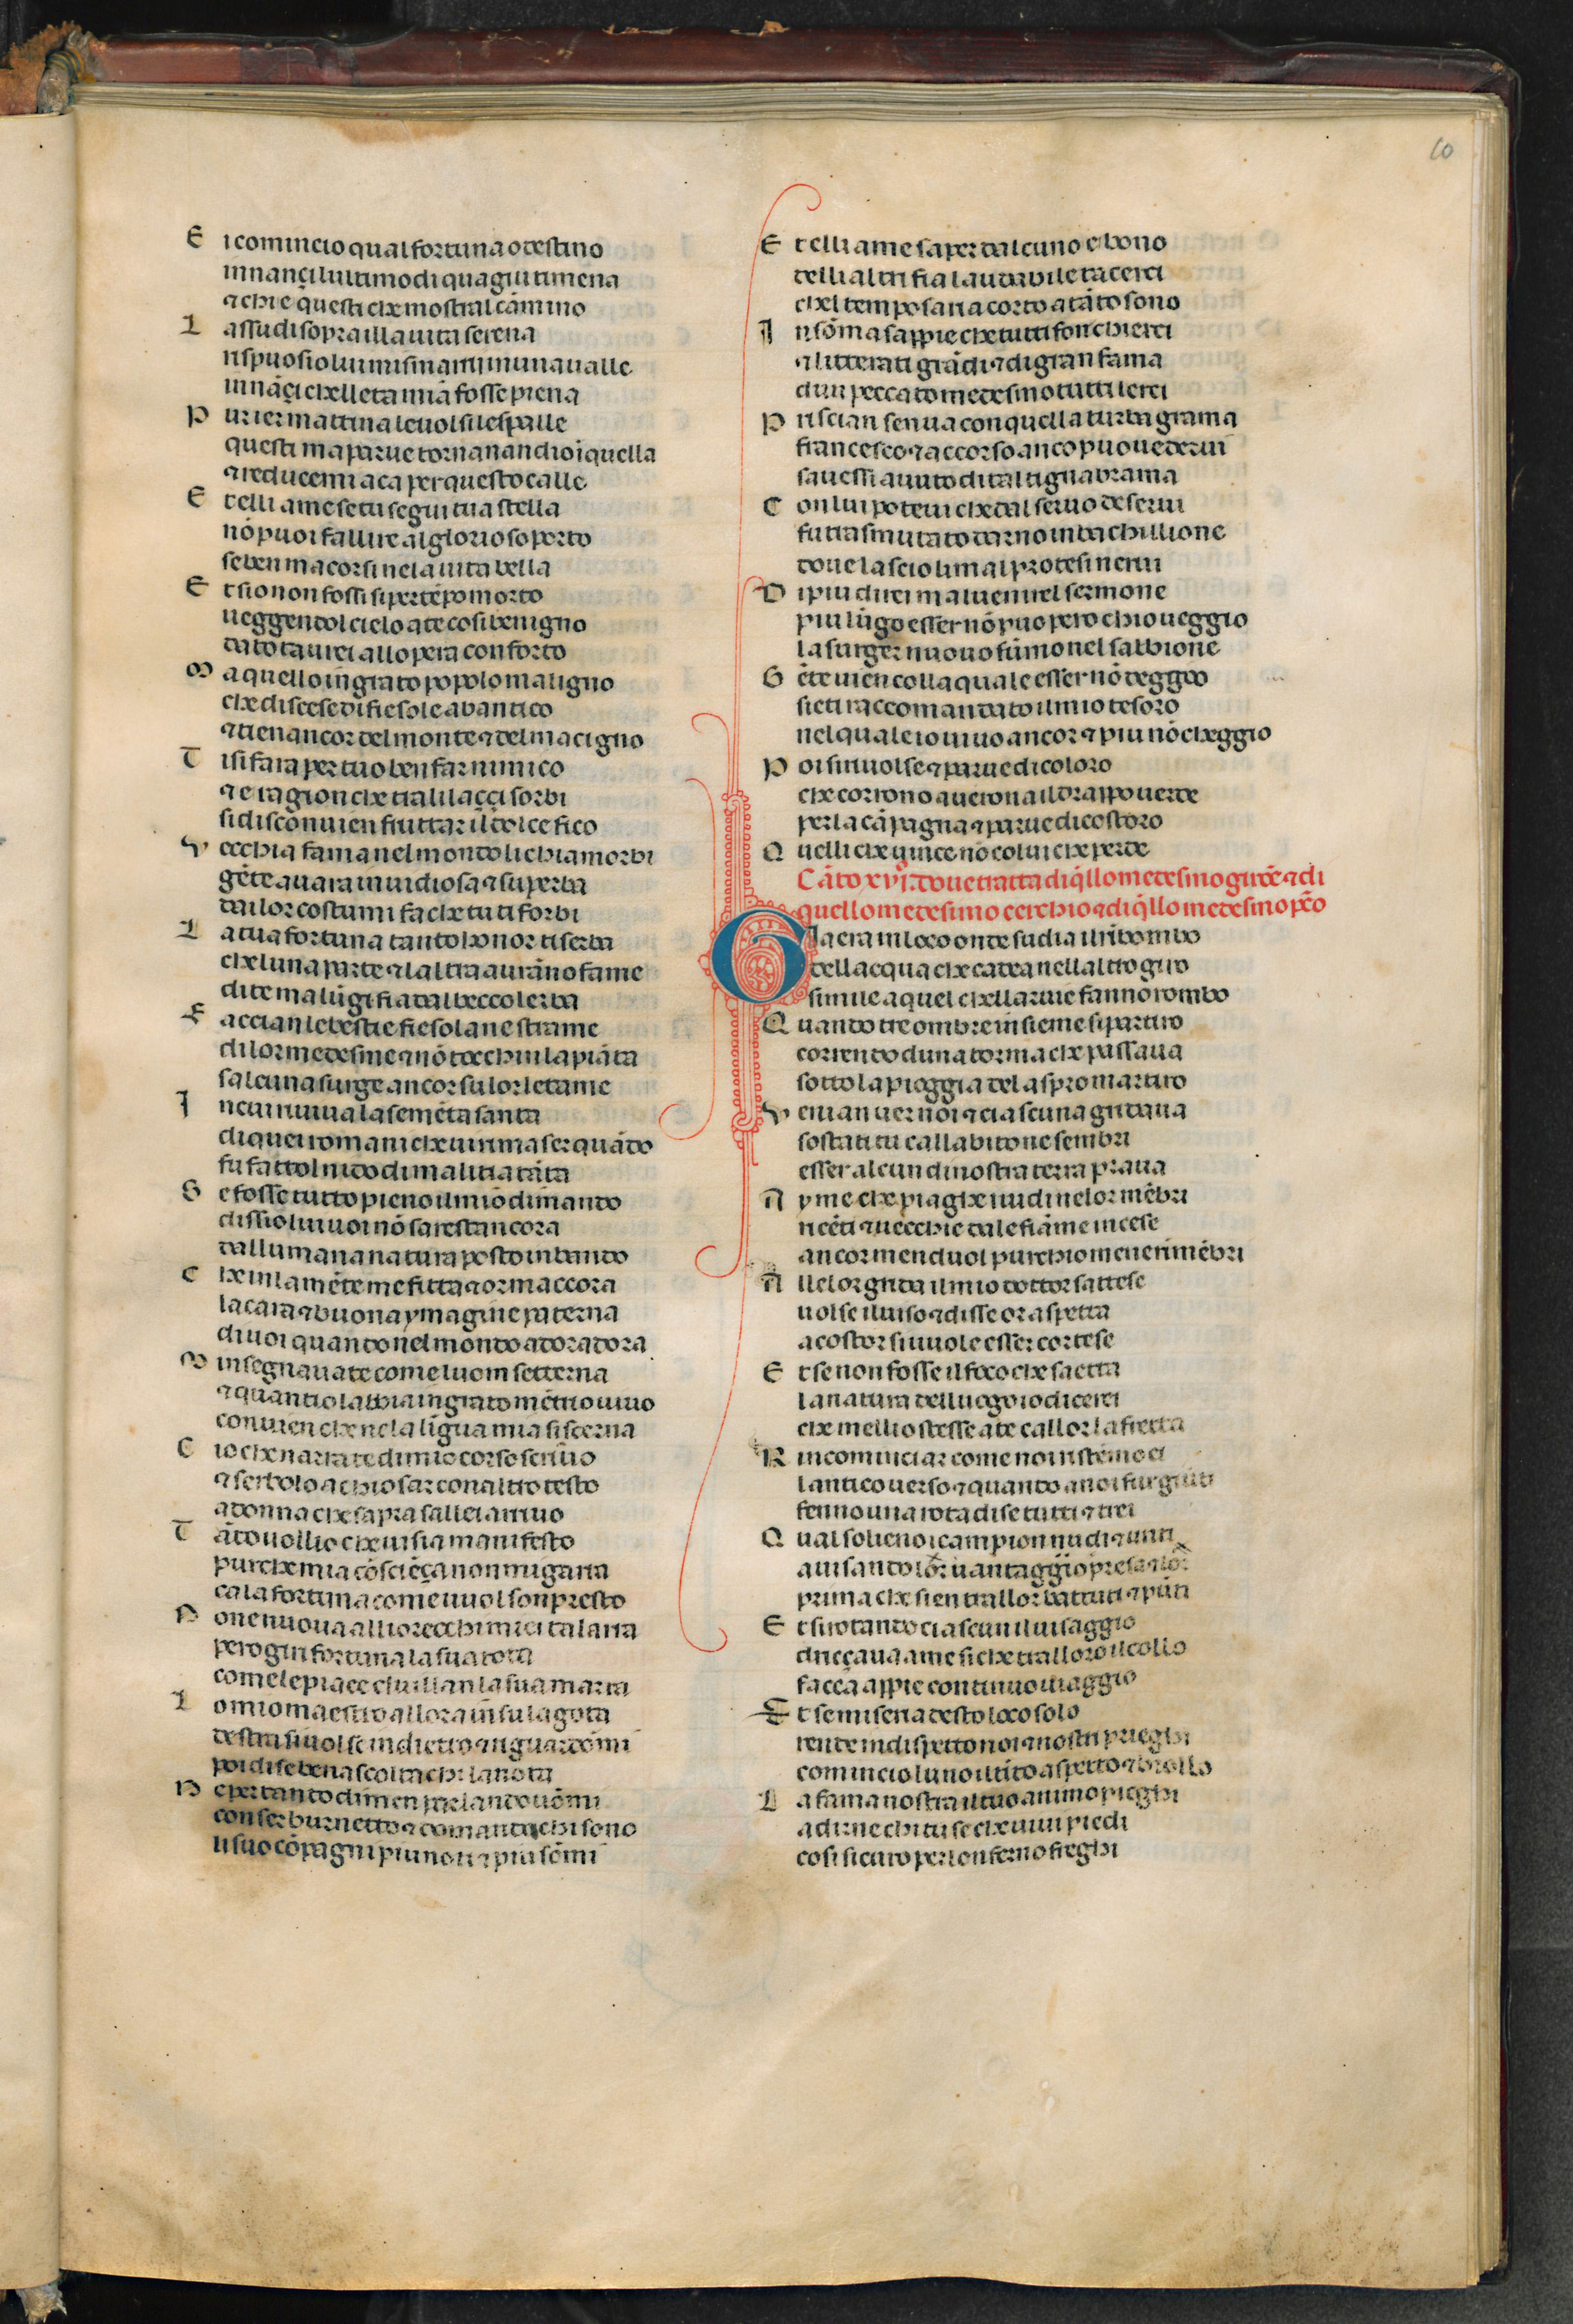 10
E icomincio qual fortuna o destino
innançi lultimo di quagiu ti mena
⁊ chi e q̄sti che mostral cāmino
L assu di sopra illa uita serena
rispuosio lui mi smarri in una ualle
innāçi chelleta mia fosse piena
P ur ier mattina le uolsi le spalle
questi maparue tornanandio i quella
⁊ reducemi a ca per questo calle
E telli a me se tu segui tua stella
nō puoi fallire al glorioso porto
se ben macorsi nela uita bella
E t sio non fossi si per tēpo morto
ueggendol cielo a te cosi benigno
dato taurei allopera conforto
M a quello ingrato popolo maligno
che discese di fiesole ab antico
⁊ tien ancor del monte ⁊ del macigno
T i si fara per tuo ben far nimico
⁊ e ragion che tra li laççi sorbi
si disconuien fruttar il dolce fico
V ecchia fama nel mondo li chiam orbi
gēte auara inuidiosa ⁊ superba
dai lor costumi fa che tu ti forbi
L a tua fortuna tanto honor ti serba
che luna parte ⁊ laltra aurāno fame
di te ma lūgi fia dal becco lerba
F accian le bestie fiesolane strame
di lor medesme ⁊ nō tochin la piāta
salcuna surge ancor su lor letame
I n cui riuiua la semēta santa
di quei romani che uirimaser quādo
fu fattol nido di malitia tāta
S e fosse tutto pieno il mio dimando
dissio lui uoi nō sarestancora
dallumana natura posto in bando
C he in la mēte me fitta ⁊ or maccora
la cara ⁊ buona ymagine paterna
di uoi quando nel mondo ad ora ad ora
M insegnauate come luom setterna
⁊ quantio labbia in grato mētrio uiuo
conuien che ne la līgua mia si scerna
C io che narrate di mio corso scriuo
⁊ serbolo a chiosar con altro testo
a donna che sapra sallei arriuo
T āto uollio che ui sia manifesto
pur che mia cōscieça non mi garra
ca la fortuna come uuol son presto
N one nuoua alli orecchi miei tal arra
pero giri fortuna la sua rota
come le piace el uillan la sua marra
L o mio maestro allora in su la gota
destra si uolse in dietro ⁊ riguardōmi
poi disse ben ascolta chi la nota
N e per tanto di men parlando uōmi
con ser burnetto ⁊ domando chi sono
li suo cōpagni piu noti ⁊ piu sōmi
E telli a me saper dalcuno e bono
delli altri fia laudabile tacerci
chel tempo saria corto a tāto sono
I n sōma sappie che tutti fon chierci
⁊ litterati grādi ⁊ di gran fama
dun peccato medesmo tutti lerci
P riscian sen ua con quella turba grama
francesco ⁊ accorso anco puoui ederui
sauessi auuto di tal tigna brama
C on lui poteui che dal seruo de serui
fu trasmutato darno in bachillione
doue lascio li mal protesi nerui
D i piu direi mal uenirel sermone
piu lūgo esser nō puo pero chio ueggio
la surger nuouo fūmo nel sabbione
G ēte uien colla quale esser nō deggio
sieti raccomandato il mio tesoro
nel quale io uiuo ancor ⁊ piu nō cheggio
P oi si riuolse ⁊ parue di coloro
che corrono a uerona il drappo uerde
per la cāpagna ⁊ parue di costoro
Q uelli che uince nō colui che perde
Cāto xvi. doue tratta di q̄llo medesmo girōe ⁊ di
quello medesimo cerchio ⁊ di q̄llo medesmo pc̄o
G ia era in loco onde sudia il ribombo
dellacqua che cadea nellaltro giro
simile a quel chellarnie fanno rombo
Q uando tre ombre insieme si partiro
correndo duna torma che passaua
sotto la pioggia del aspro martiro
V enian uer noi ⁊ ciascuna gridaua
sostati tu callabito ne sembri
esser alcun di nostra terra praua
A yme che piaghe uidi ne lor mēbri
ricēti ⁊ uecchie da le fiāme incese
ancor men duol pur chio me ne rimēbri
A lle lor grida il mio dottor sattese
uolse il uiso ⁊ disse or aspetta
a costor si uuole esser cortese
E t se non fosse il foco che saetta
la natura dell uogo io dicerei
che mellio stesse a te callor la fretta
R incominciar come noi ristēmo ei
lantico uerso ⁊ quando a noi fur giūti
fenno una rota di se tutti ⁊ trei
Q ual solieno i campion nudi ⁊ unti
auisando lor uantaggio presa ⁊ lor
prima che sien trallor battuti ⁊ pūti
E t si rotando ciascun il uisaggio
driççaua a me si che tralloro il collo
faccā appie continuo uiaggio
E t se miseria desto loco solo
rende in dispetto noi ⁊ nostri prieghi
comincio luno il tīto aspetto ⁊ brollo
L a fama nostra il tuo animo pieghi
a dirne chi tu se che uiui piedi
cosi sicuro per lonferno freghi